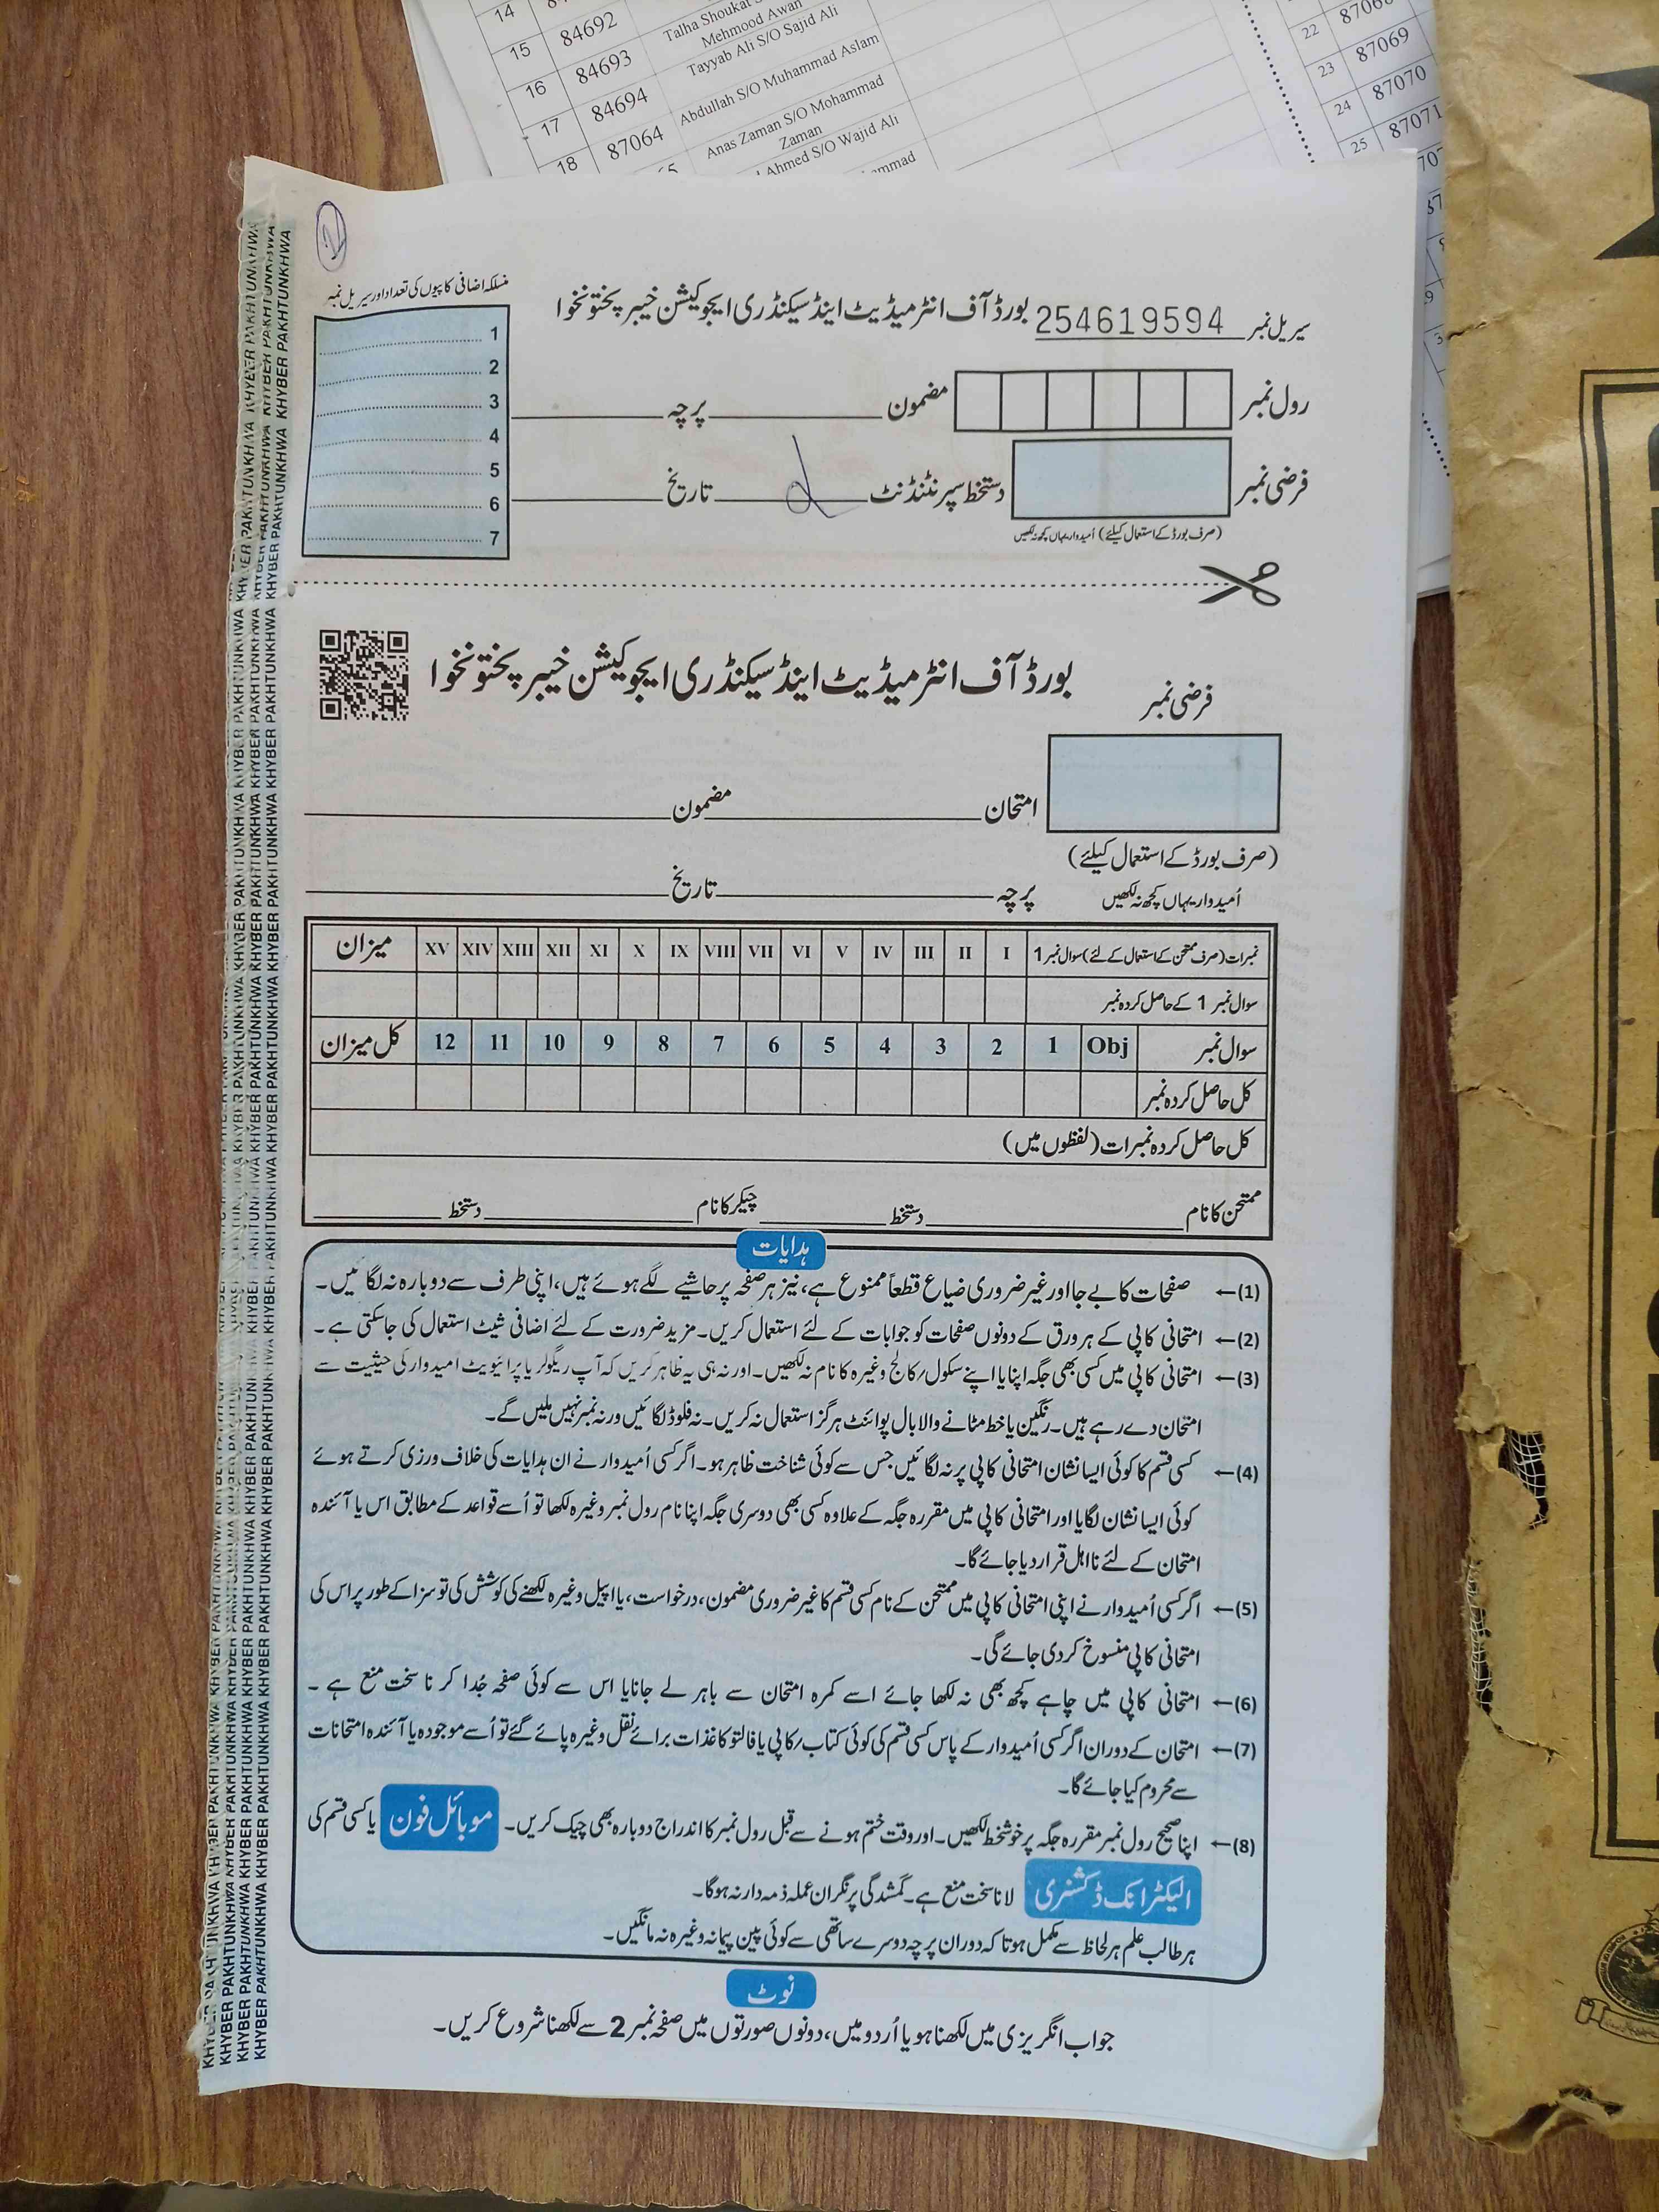 14
15 84692 Talha Shoukat
Mehmood Awan
16 84693 Tayyab Ali S/O Sajid Ali
17 84694
18 87064 Abdullah S/O Muhammad Aslam
Anas Zaman S/O Mohammad
Zaman
Ahmed S/O Wajid Ali
22
23 87069
24 87070
25 87071
منسلکہ اضافی کاپیوں کی تعداد اور سیریل نمبر
1
2
3
4
5
6
7
سیریل نمبر 254619594 بورڈ آف انٹرمیڈیٹ اینڈ سیکنڈری ایجوکیشن خیبر پختونخوا
رول نمبر مضمون پرچہ
فرضی نمبر دستخط سپرنٹنڈنٹ تاریخ
(صرف بورڈ کے استعمال کیلئے) اُمیدوار یہاں کچھ نہ لکھیں
بورڈ آف انٹرمیڈیٹ اینڈ سیکنڈری ایجوکیشن خیبر پختونخوا
فرضی نمبر
امتحان مضمون
(صرف بورڈ کے استعمال کیلئے)
اُمیدوار یہاں کچھ نہ لکھیں
پرچہ تاریخ
نمبرات (صرف ممتحن کے استعمال کے لئے) سوال نمبر 1 I II III IV V VI VII VIII IX X XI XII XIII XIV XV میزان
سوال نمبر 1 کے حاصل کردہ نمبر
سوال نمبر Obj 1 2 3 4 5 6 7 8 9 10 11 12 کل میزان
کل حاصل کردہ نمبر
کل حاصل کردہ نمبرات (لفظوں میں)
ممتحن کا نام دستخط چیکر کا نام دستخط
ہدایات
(1)← صفحات کا بے جا اور غیر ضروری ضیاع قطعاً ممنوع ہے، نیز ہر صفحہ پر حاشیے لگے ہوئے ہیں، اپنی طرف سے دوبارہ نہ لگائیں۔
(2)← امتحانی کاپی کے ہر ورق کے دونوں صفحات کو جوابات کے لئے استعمال کریں۔ مزید ضرورت کے لئے اضافی شیٹ استعمال کی جاسکتی ہے۔
(3)← امتحانی کاپی میں کسی بھی جگہ اپنا یا اپنے سکول/کالج وغیرہ کا نام نہ لکھیں۔ اور نہ ہی یہ ظاہر کریں کہ آپ ریگولر یا پرائیویٹ امیدوار کی حیثیت سے
امتحان دے رہے ہیں۔ رنگین یا خط مٹانے والا بال پوائنٹ ہرگز استعمال نہ کریں۔ نہ فلوڈ لگائیں ورنہ نمبر نہیں ملیں گے۔
(4)← کسی قسم کا کوئی ایسا نشان امتحانی کاپی پر نہ لگائیں جس سے کوئی شناخت ظاہر ہو۔ اگر کسی اُمیدوار نے ان ہدایات کی خلاف ورزی کرتے ہوئے
کوئی ایسا نشان لگایا اور امتحانی کاپی میں مقررہ جگہ کے علاوہ کسی بھی دوسری جگہ اپنا نام رول نمبر وغیرہ لکھا تو اُسے قواعد کے مطابق اس یا آئندہ
امتحان کے لئے نااہل قرار دیا جائے گا۔
(5)← اگر کسی اُمیدوار نے اپنی امتحانی کاپی میں ممتحن کے نام کسی قسم کا غیر ضروری مضمون، درخواست، یا اپیل وغیرہ لکھنے کی کوشش کی تو سزا کے طور پر اس کی
امتحانی کاپی منسوخ کردی جائے گی۔
(6)← امتحانی کاپی میں چاہے کچھ بھی نہ لکھا جائے اسے کمرہ امتحان سے باہر لے جانا یا اس سے کوئی صفحہ جُدا کرنا سخت منع ہے۔
(7)← امتحان کے دوران اگر کسی اُمیدوار کے پاس کسی قسم کی کوئی کتاب/کاپی یا فالتو کاغذات برائے نقل وغیرہ پائے گئے تو اُسے موجودہ یا آئندہ امتحانات
سے محروم کیا جائے گا۔
(8)← اپنا صحیح رول نمبر مقررہ جگہ پر خوشخط لکھیں۔ اور وقت ختم ہونے سے قبل رول نمبر کا اندراج دوبارہ بھی چیک کریں۔ موبائل فون یا کسی قسم کی
الیکٹرانک ڈکشنری لانا سخت منع ہے۔ گمشدگی پر نگران عملہ ذمہ دار نہ ہوگا۔
ہر طالب علم ہر لحاظ سے مکمل ہو تا کہ دوران پرچہ دوسرے ساتھی سے کوئی پین پیمانہ وغیرہ نہ مانگیں۔
نوٹ
جواب انگریزی میں لکھنا ہو یا اُردو میں، دونوں صورتوں میں صفحہ نمبر 2 سے لکھنا شروع کریں۔
KHYBER PAKHTUNKHWA KHYBER PAKHTUNKHWA KHYBER PAKHTUNKHWA